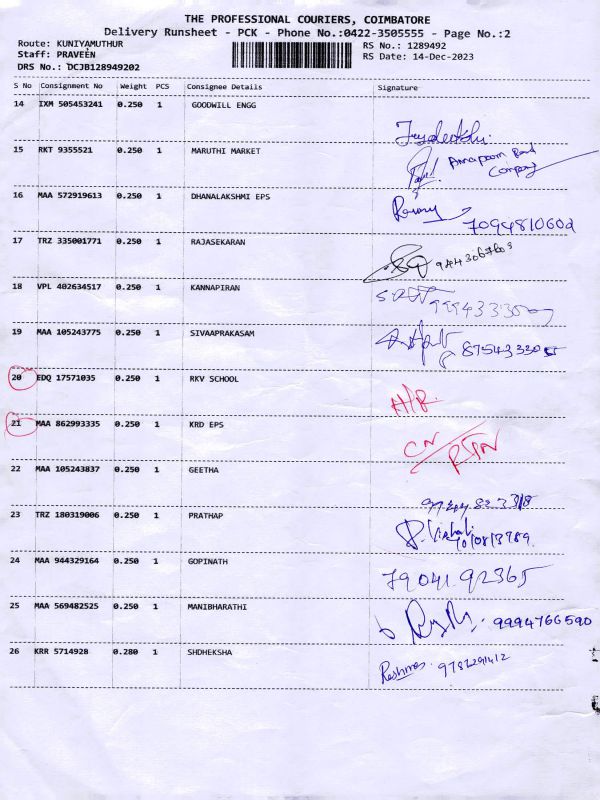 THE PROFESSIONAL COURIERS, COIMBATORE
Delivery Runsheet - PCK - Phone No.:0422-3505555 - Page No.:2
Route: KUNIYAMUTHUR RS No.: 1289492
Staff: PRAVEEN RS Date: 14-Dec-2023
DRS No.: DCJB128949202
S No Consignment No Weight PCS Consignee Details Signature
14 IXM 505453241 0.250 1 GOODWILL ENGG
15 RKT 9355521 0.250 1 MARUTHI MARKET
Company
16 MAA 572919613 0.250 1 DHANALAKSHMI EPS
7094810602
17 TRZ 335001771 0.250 1 RAJASEKARAN
18 VPL 402634517 0.250 1 KANNAPIRAN
19 MAA 105243775 0.250 1 SIVAAPRAKASAM
20 EDQ 17571035 0.250 1 RKV SCHOOL
21 MAA 862993335 0.250 1 KRD EPS
CN
RTN
22 MAA 105243837 0.250 1 GEETHA
23 TRZ 180319006 0.250 1 PRATHAP
24 MAA 944329164 0.250 1 GOPINATH
79041.92365
25 MAA 569482525 0.250 1 MANIBHARATHI
9994766590
26 KRR 5714928 0.280 1 SHDHEKSHA